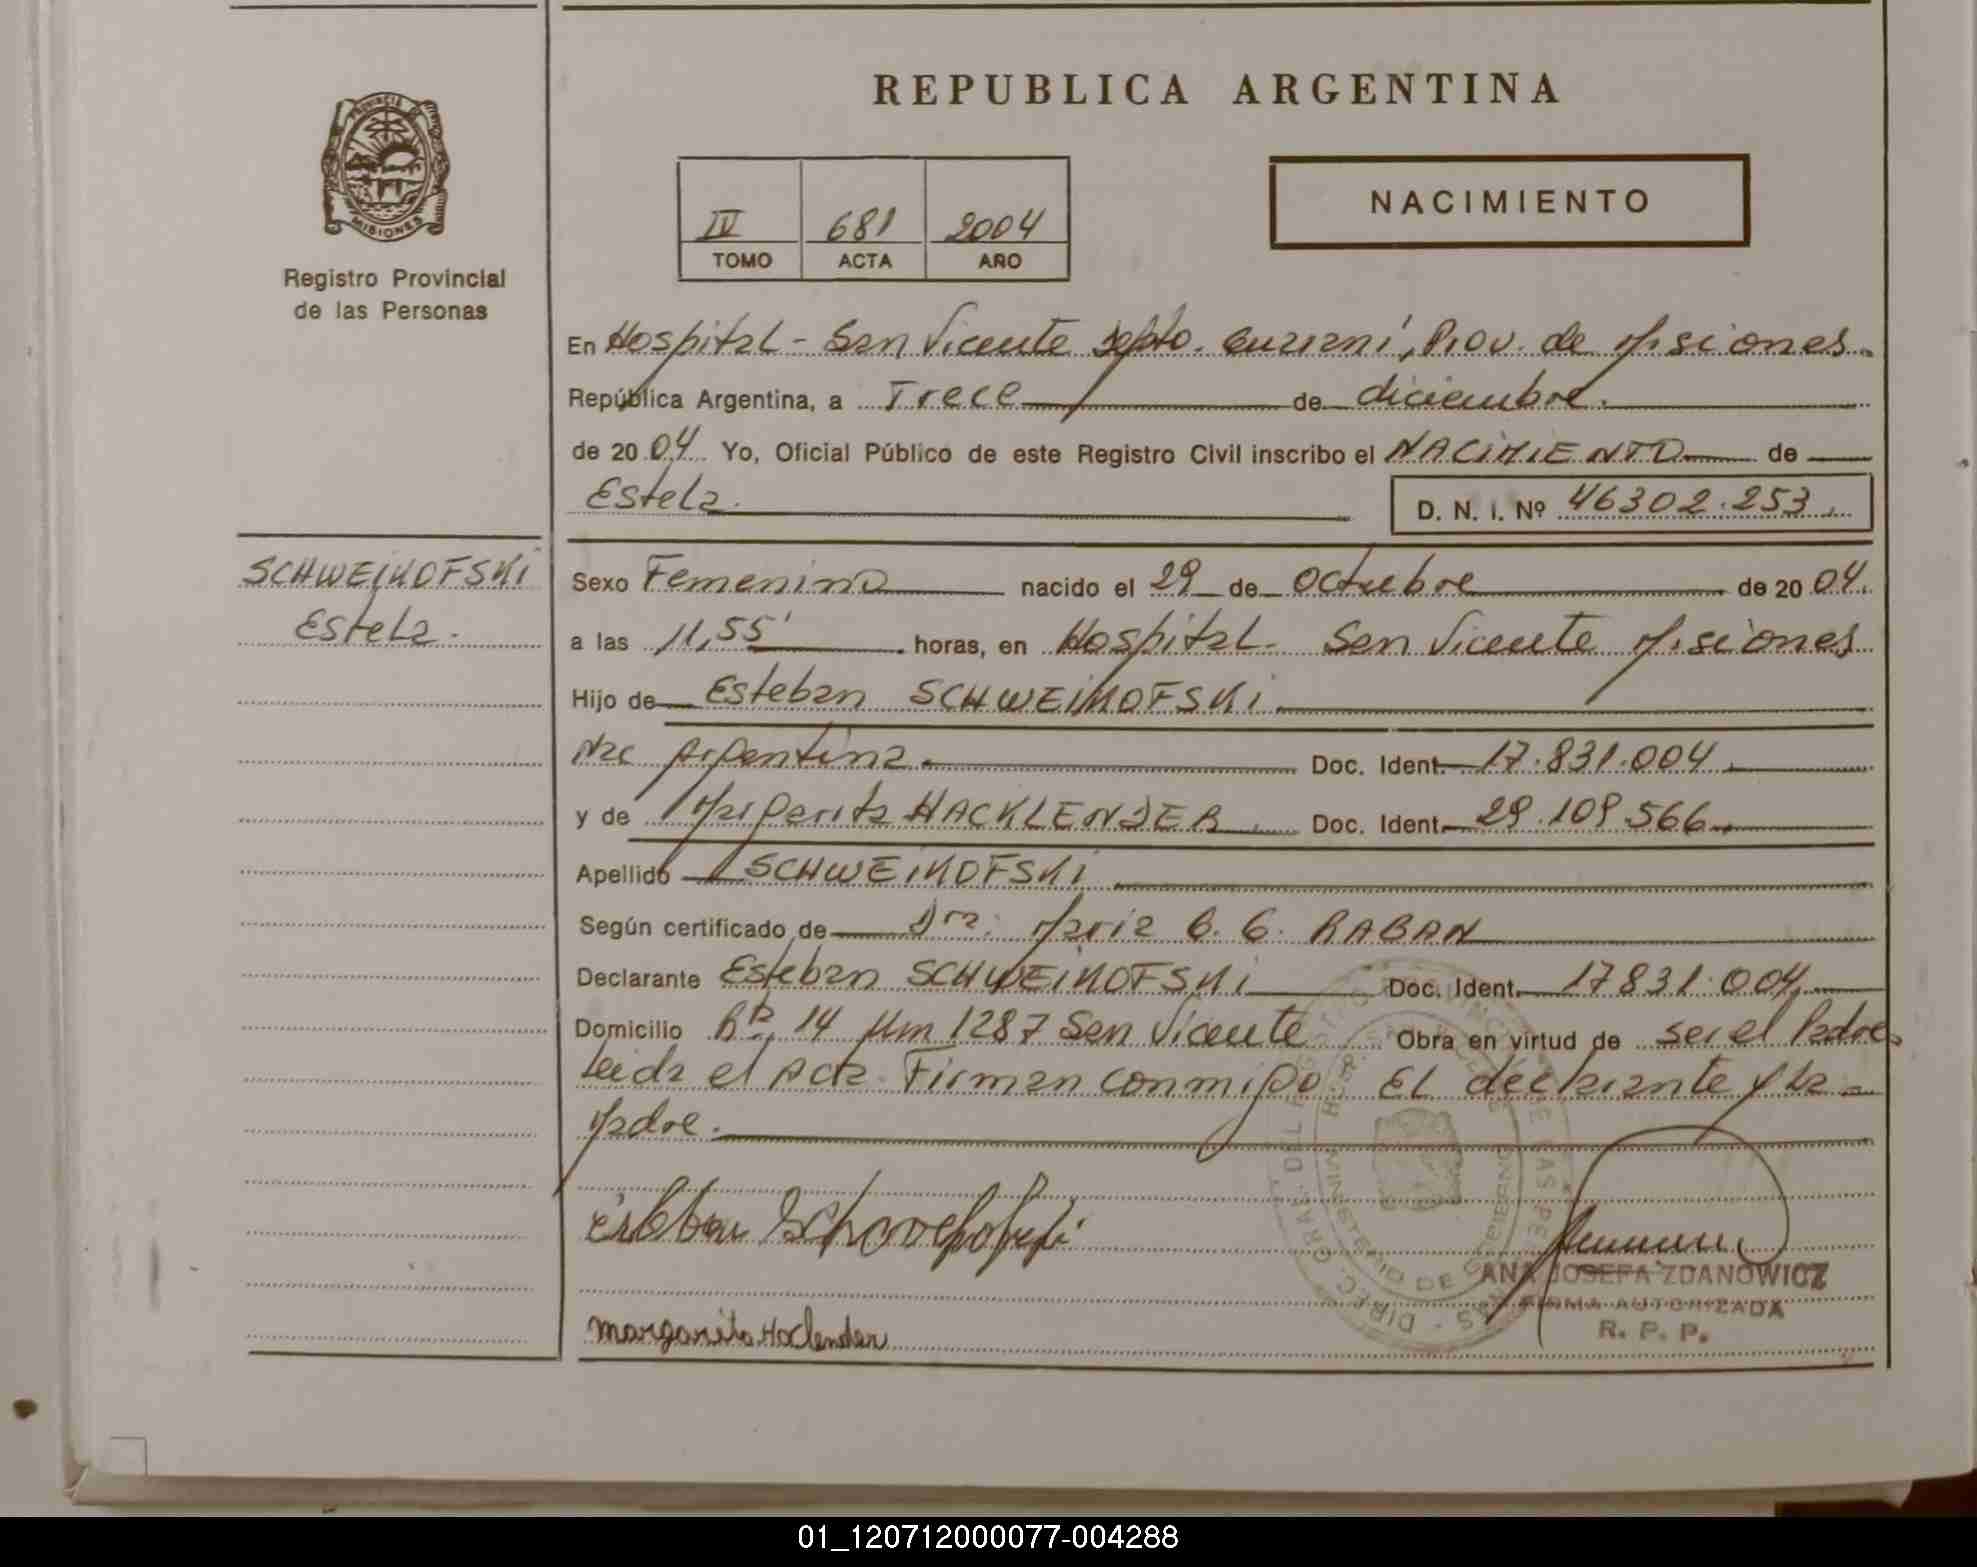 REPUBLICA ARGENTINA
PROVINCIA
MISIONES
Registro Provincial
de las Personas
IV 681 2004
TOMO ACTA AÑO
NACIMIENTO
En Hospital - San Vicente Depto. Guaraní, Prov. de Misiones
República Argentina, a Trece de diciembre.
de 2004 Yo, Oficial Público de este Registro Civil inscribo el NACIMIENTO de
Estela.
D. N. I. Nº 46302.253.
SCHWEIKOFSKI
Estela.
Sexo Femenino nacido el 29 de octubre de 2004.
a las 11,55' horas, en Hospital - San Vicente Misiones
Hijo de Esteban SCHWEIKOFSKI
Nac Argentina. Doc. Ident. 17.831.004
y de Margarita HACKLENDER Doc. Ident. 29.109.566
Apellido SCHWEIKOFSKI
Según certificado de Dra. Maria G. G. RABAN
Declarante Esteban SCHWEIKOFSKI Doc. Ident. 17831.004
Domicilio Rta. 14 Km 1287 San Vicente Obra en virtud de ser el Padre
Leida el Acta. Firman conmigo El declarante y La
Madre.
Esteban
Margarita Haclender
ANA JOSEFA ZDANOWICZ
FIRMA AUTORIZADA
R. P. P.
01_120712000077-004288